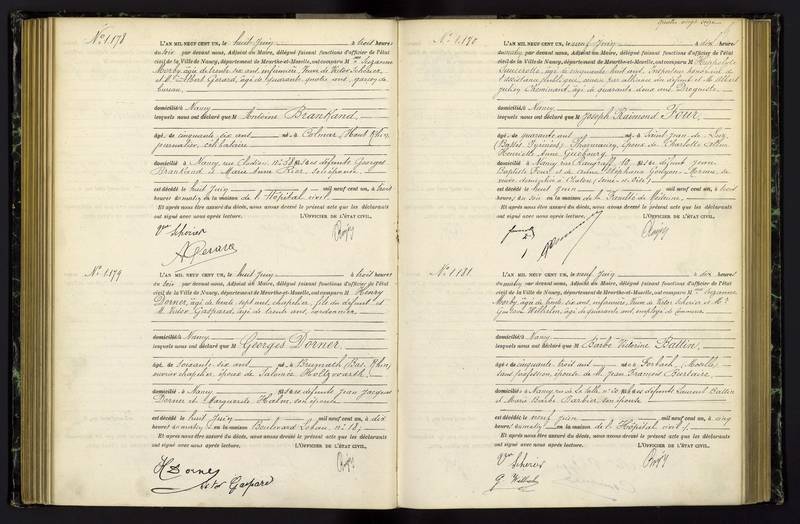 N° 1178
L'AN MIL NEUF CENT UN, le huit Juin à trois heures
du soir par devant nous, Adjoint au Maire, délégué faisant fonctions d'officier de l'état
civil de la Ville de Nancy, département de Meurthe-et-Moselle, ont comparu M me Suzanne
Morby, âgée de trente six ans, infirmière, Veuve de Victor Scherier,
et Mr Albert Gérard, âgé de quarante quatre ans, garçon de
bureau,
domiciliés à Nancy
lesquels nous ont déclaré que M Antoine Brankand
âgé de cinquante six ans né à Colmar, Haut Rhin,
journalier, célibataire
domicilié à Nancy, rue fils des défunts Georges
Brankand & Marie Anne son épouse
est décédé le huit Juin mil neuf cent un, à trois
heures du matin en la maison de l'Hôpital civil
Et après nous être assuré du décès, nous avons dressé le présent acte que les déclarants
ont signé avec nous après lecture. L'OFFICIER DE L'ÉTAT CIVIL,
Vve Scherier
N° 1179
L'AN MIL NEUF CENT UN, le huit Juin à trois heures
du soir par devant nous, Adjoint au Maire, délégué faisant fonctions d'officier de l'état
civil de la Ville de Nancy, département de Meurthe-et-Moselle, ont comparu M Henry
Dorner, âgé de trente sept ans, chapelier, fils du défunt et
M. Victor Gaspard, âgé de trente ans, cordonnier,
domiciliés à Nancy
lesquels nous ont déclaré que M Georges Dorner
âgé de soixante six ans né à Brumath (Bas Rhin)
ouvrier chapelier, époux de Salomée Holtzwarth
domicilié à Nancy fils des défunts Jean Jacques
Dorner & Marguerite Hahn, son épouse
est décédé le huit Juin mil neuf cent un, à dix
heures du matin en la maison Boulevard Lobau, n° 18;
Et après nous être assuré du décès, nous avons dressé le présent acte que les déclarants
ont signé avec nous après lecture. L'OFFICIER DE L'ÉTAT CIVIL,
H Dorner
Victor Gaspard
N° 1180
L'AN MIL NEUF CENT UN, le neuf Juin à dix heures
du matin par devant nous, Adjoint au Maire, délégué faisant fonctions d'officier de l'état
civil de la Ville de Nancy, département de Meurthe-et-Moselle, ont comparu M Hippolyte
âgé de cinquante huit ans, Inspecteur honoraire de
l'assistance publique, du défunt et M. Albert
âgé de quarante deux ans, Droguiste,
domiciliés à Nancy
lesquels nous ont déclaré que M Joseph Raimond Four
âgé de quarante ans né à Saint Jean de Luz
(Basses Pyrénées) Pharmacien, époux de Charlotte
Henriette Anne
domicilié à Nancy, rue 10, fils de défunt Jean
Baptiste Four et de
est décédé le huit Juin mil neuf cent un, à trois
heures du soir en la maison de la
Et après nous être assuré du décès, nous avons dressé le présent acte que les déclarants
ont signé avec nous après lecture. L'OFFICIER DE L'ÉTAT CIVIL,
N° 1181
L'AN MIL NEUF CENT UN, le neuf Juin à dix heures
du matin par devant nous, Adjoint au Maire, délégué faisant fonctions d'officier de l'état
civil de la Ville de Nancy, département de Meurthe-et-Moselle, ont comparu M me Suzanne
Morby, âgée de trente six ans, infirmière, Veuve de Victor Scherier et Mr
Gustave Wilhelm, âgé de quarante ans, employé de commerce
domiciliés à Nancy
lesquels nous ont déclaré que M Barbe Victorine Ballin
âgée de cinquante trois ans née à Forbach (Moselle)
sans profession, épouse de M. Jean François
domiciliée à Nancy, rue de la fille des défunts Laurent Ballin
et Marie Barbe Barbier son épouse
est décédée le neuf Juin mil neuf cent un, à cinq
heures du matin en la maison de l'Hôpital civil
Et après nous être assuré du décès, nous avons dressé le présent acte que les déclarants
ont signé avec nous après lecture. L'OFFICIER DE L'ÉTAT CIVIL,
Vve Scherier
G Wilhelm